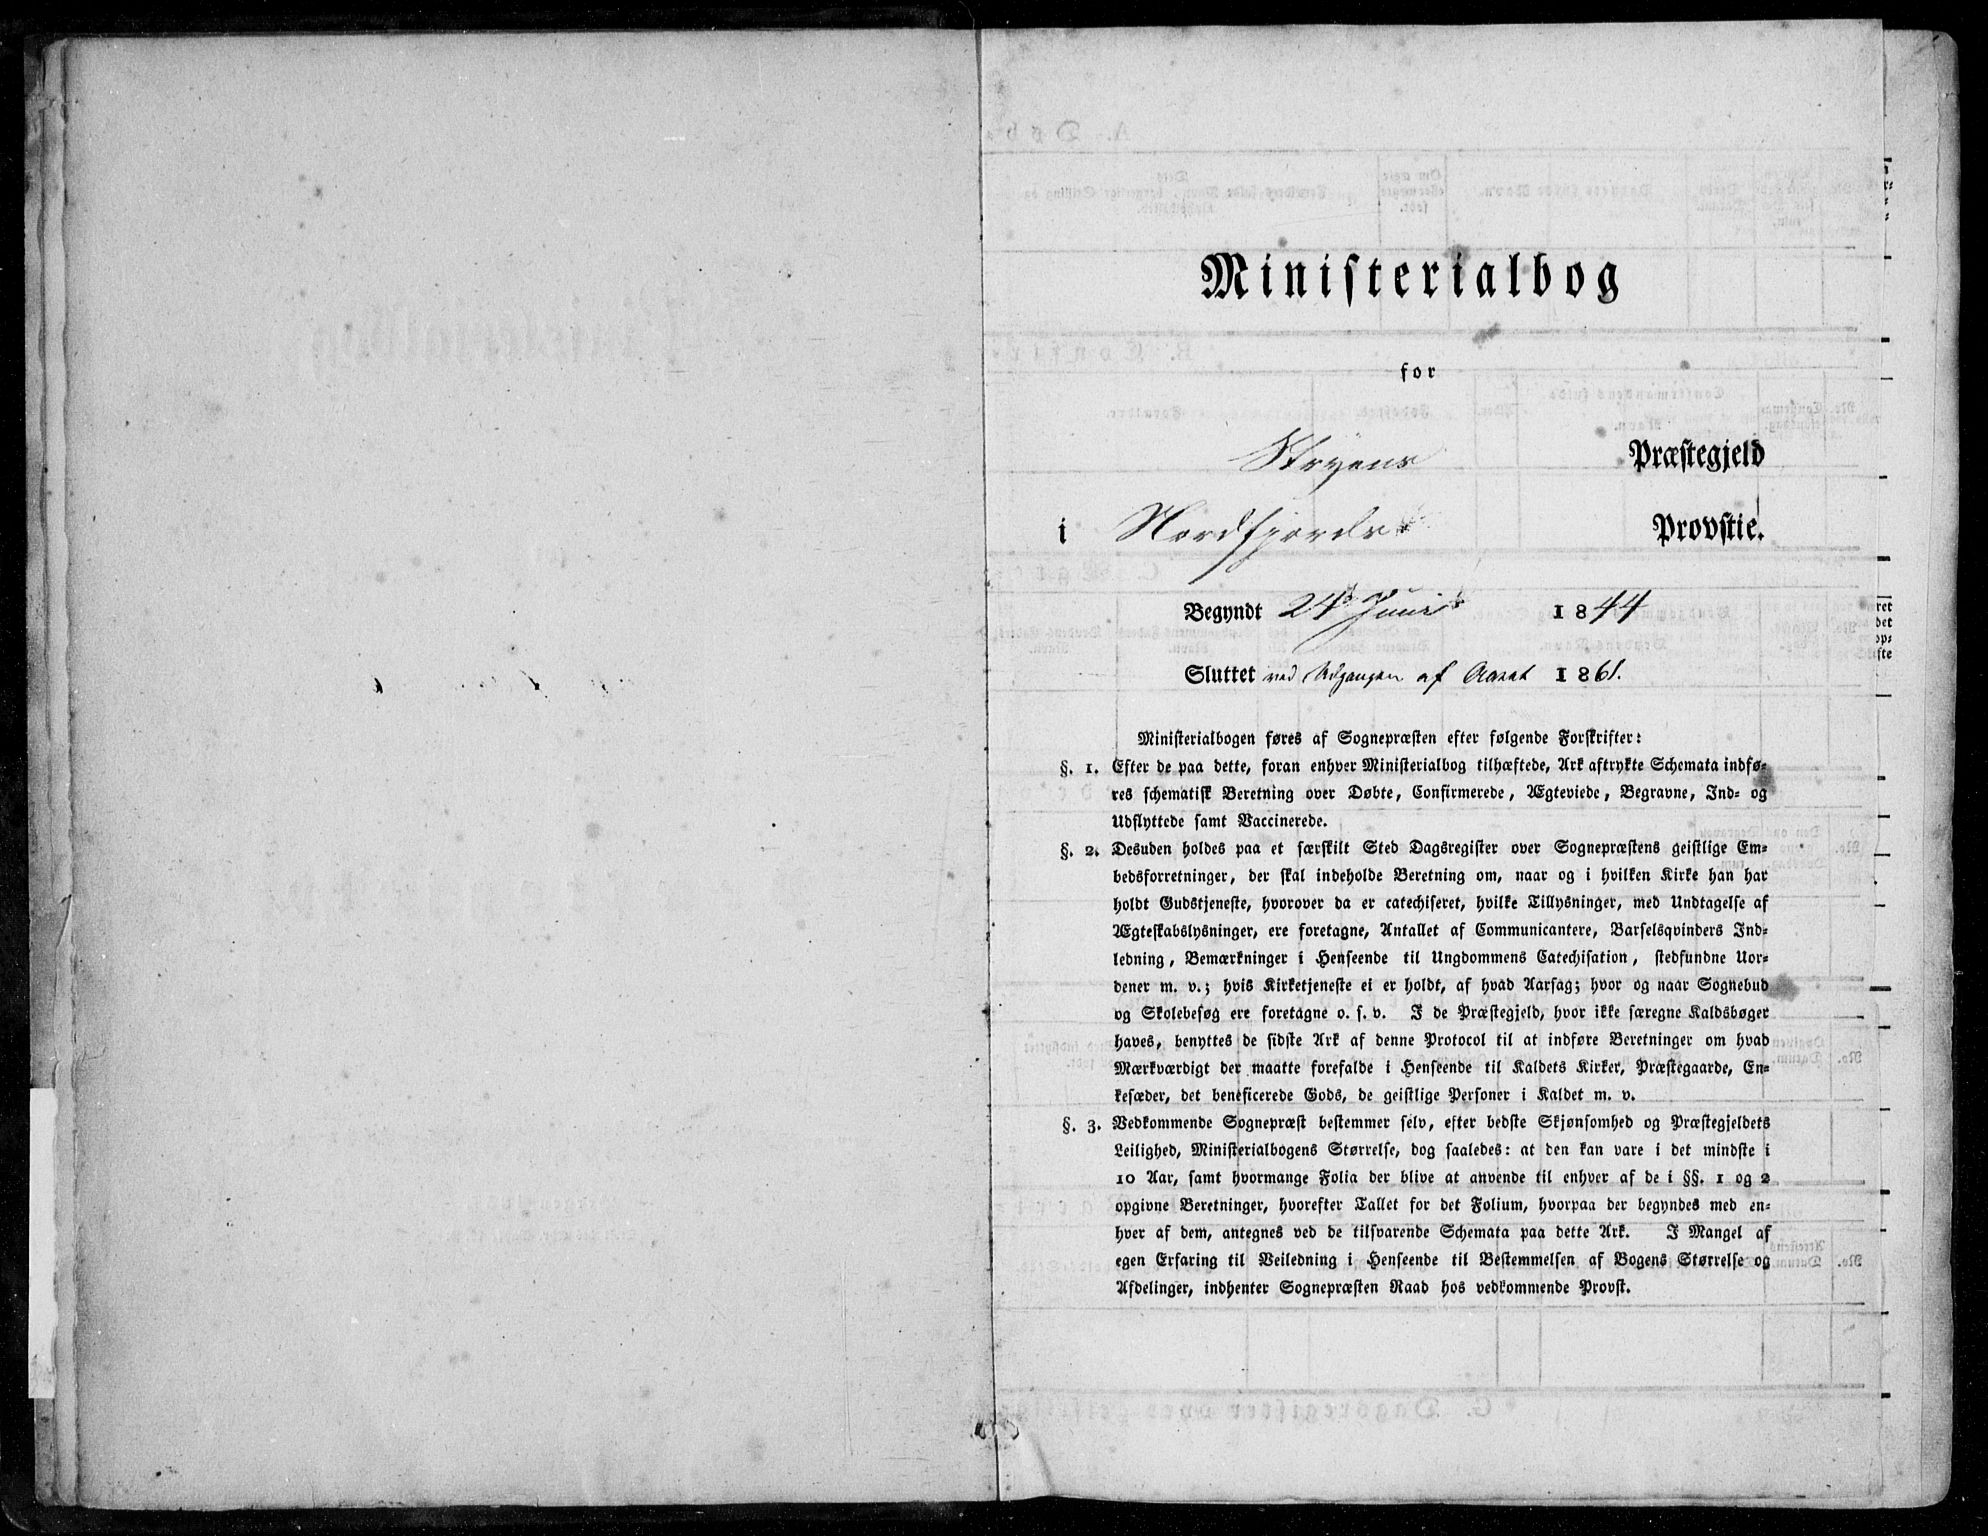 Ministerialbog
for
Stryens Præstegjeld
i Nordfjords Provstie.
Begyndt 24de Juni 1844
Sluttet ved Udgangen af Aaret 1861.
Ministerialbogen føres af Sognepræsten efter følgende Forskrifter:
§. 1. Efter de paa dette, foran enhver Ministerialbog tilhæftede, Ark aftrykte Schemata indfø-
res schematisk Beretning over Døbte, Confirmerede, Ægteviede, Begravne, Ind- og
Udflyttede samt Vaccinerede.
§. 2. Desuden holdes paa et særskilt Sted Dagsregister over Sognepræstens geistlige Em-
bedsforretninger, der skal indeholde Beretning om, naar og i hvilken Kirke han har
holdt Gudstjeneste, hvorover da er catechiseret, hvilke Tillysninger, med Undtagelse af
Ægteskabslysninger, ere foretagne, Antallet af Communicantere, Barselsqvinders Ind-
ledning, Bemærkninger i Henseende til Ungdommens Catechisation, stedfundne Uor-
dener m. v.; hvis Kirketjeneste ei er holdt, af hvad Aarsag; hvor og naar Sognebud
og Skolebesøg ere foretagne o. s. v. I de Præstegjeld, hvor ikke særegne Kaldsbøger
haves, benyttes de sidste Ark af denne Protocol til at indføre Beretninger om hvad
Mærkværdigt der maatte forefalde i Henseende til Kaldets Kirker, Præstegaarde, En-
kesæder, det beneficerede Gods, de geistlige Personer i Kaldet m. v.
§. 3. Vedkommende Sognepræst bestemmer selv, efter bedste Skjønsomhed og Præstegjeldets
Leilighed, Ministerialbogens Størrelse, dog saaledes: at den kan vare i det mindste i
10 Aar, samt hvormange Folia der blive at anvende til enhver af de i §§. 1 og 2
opgivne Beretninger, hvorefter Tallet for det Folium, hvorpaa der begyndes med en-
hver af dem, antegnes ved de tilsvarende Schemata paa dette Ark. I Mangel af
egen Erfaring til Veiledning i Henseende til Bestemmelsen af Bogens Størrelse og
Afdelinger, indhenter Sognepræsten Raad hos vedkommende Provst.